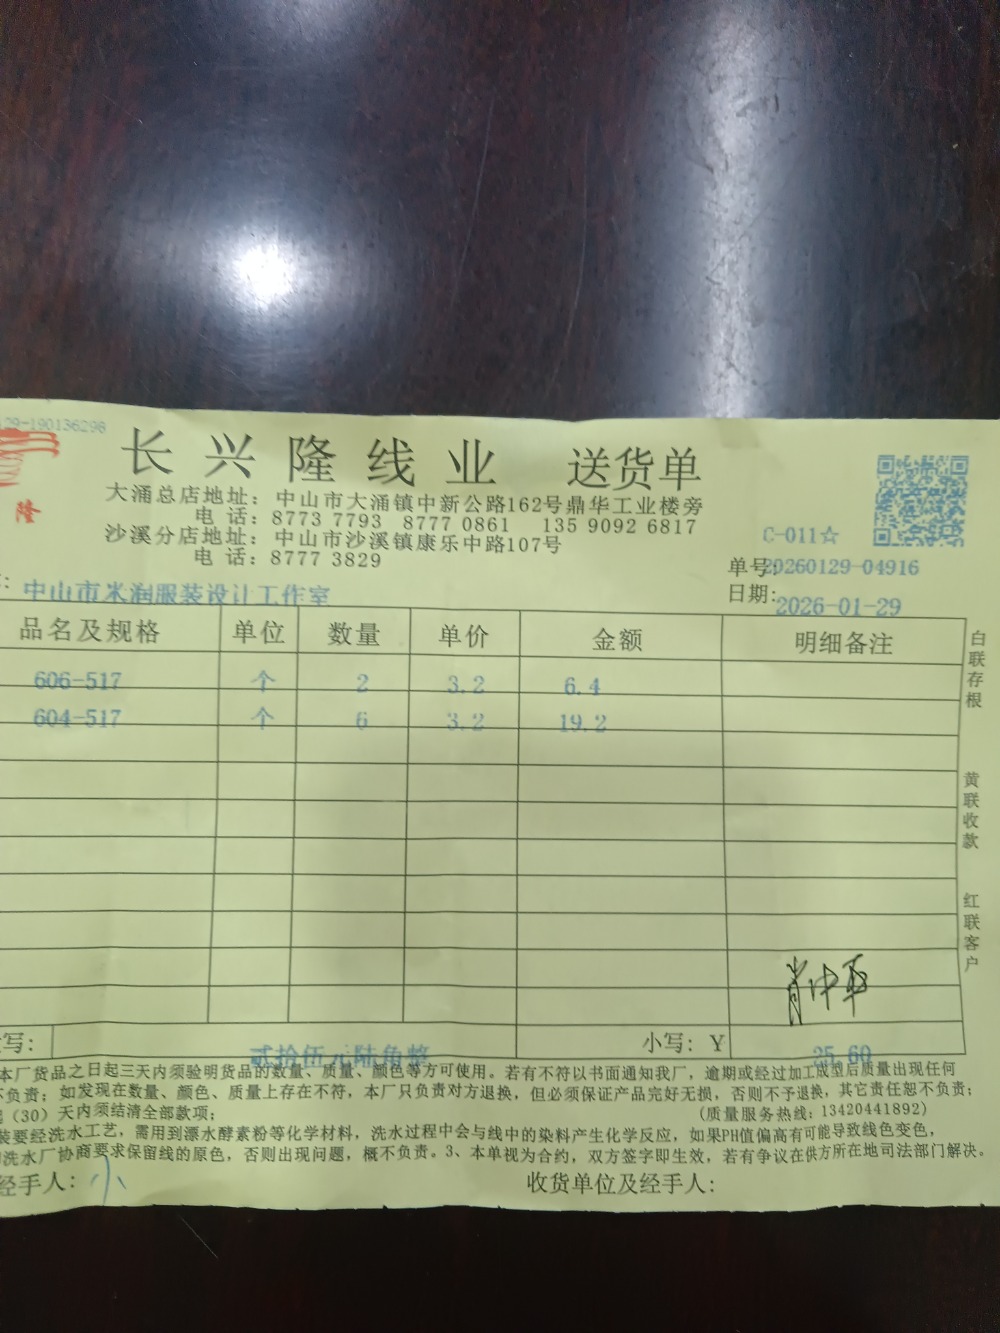 129-190136298
隆
长兴隆线业 送货单
大涌总店地址：中山市大涌镇中新公路162号鼎华工业楼旁
电 话：8773 7793 8777 0861 135 9092 6817
沙溪分店地址：中山市沙溪镇康乐中路107号
电 话：8777 3829
C-011☆
单号:20260129-04916
日期:2026-01-29
中山市米润服装设计工作室
品名及规格 单位 数量 单价 金额 明细备注
606-517 个 2 3.2 6.4
604-517 个 6 3.2 19.2
白联存根
黄联收款
红联客户
写： 贰拾伍元陆角整 小写：Y 25.60
本厂货品之日起三天内须验明货品的数量、质量、颜色等方可使用。若有不符以书面通知我厂，逾期或经过加工成型后质量出现任何
不负责；如发现在数量、颜色、质量上存在不符，本厂只负责对方退换，但必须保证产品完好无损，否则不予退换，其它责任恕不负责；
（30）天内须结清全部款项； （质量服务热线：13420441892）
装要经洗水工艺，需用到漂水酵素粉等化学材料，洗水过程中会与线中的染料产生化学反应，如果PH值偏高有可能导致线色变色，
洗水厂协商要求保留线的原色，否则出现问题，概不负责。3、本单视为合约，双方签字即生效，若有争议在供方所在地司法部门解决。
经手人：小 收货单位及经手人：